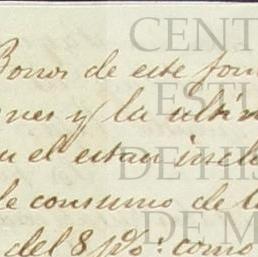 Bonos de este fon
nes y la ultim
n el estan incl
de consumo de l
del 8 p%: como
CENT
ESTU
DE HIS
DE M